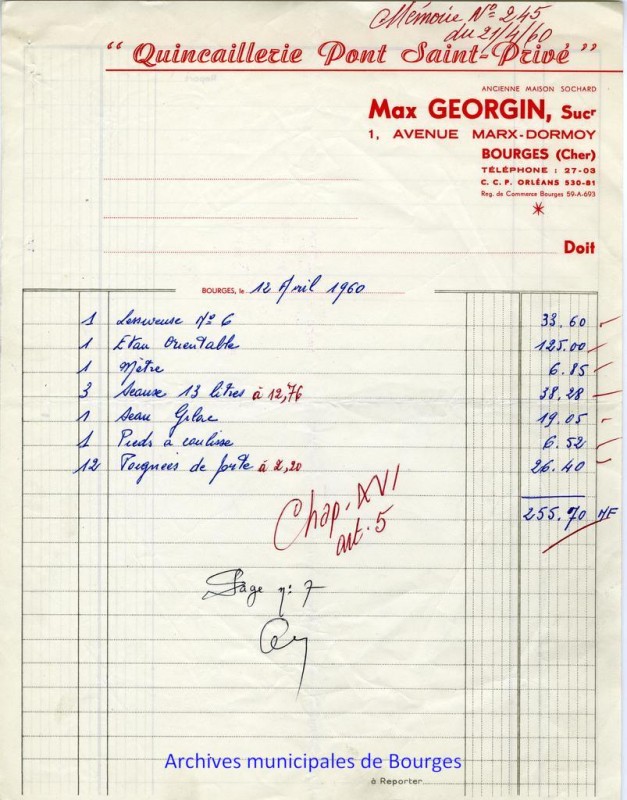 Mémoire N° 245
du 21/4/60
" Quincaillerie Pont Saint-Privé "
ANCIENNE MAISON SOCHARD
Max GEORGIN, Sucr
1, AVENUE MARX-DORMOY
BOURGES (Cher)
TÉLÉPHONE : 27-03
C. C. P. ORLÉANS 530-81
Reg. de Commerce Bourges 59-A-693
Doit
BOURGES, le 12 Avril 1960
1 Lessiveuse N° 6 33.60
1 Etau Orientable 125.00
1 Mètre 6.85
3 Seaux 13 litres à 12,76 38.28
1 Seau 19.05
1 Pieds à coulisse 6.52
12 Poignées de porte à 2,20 26.40
255.70 NF
Chap. XVI
art. 5
Page n° 7
Archives municipales de Bourges
à Reporter